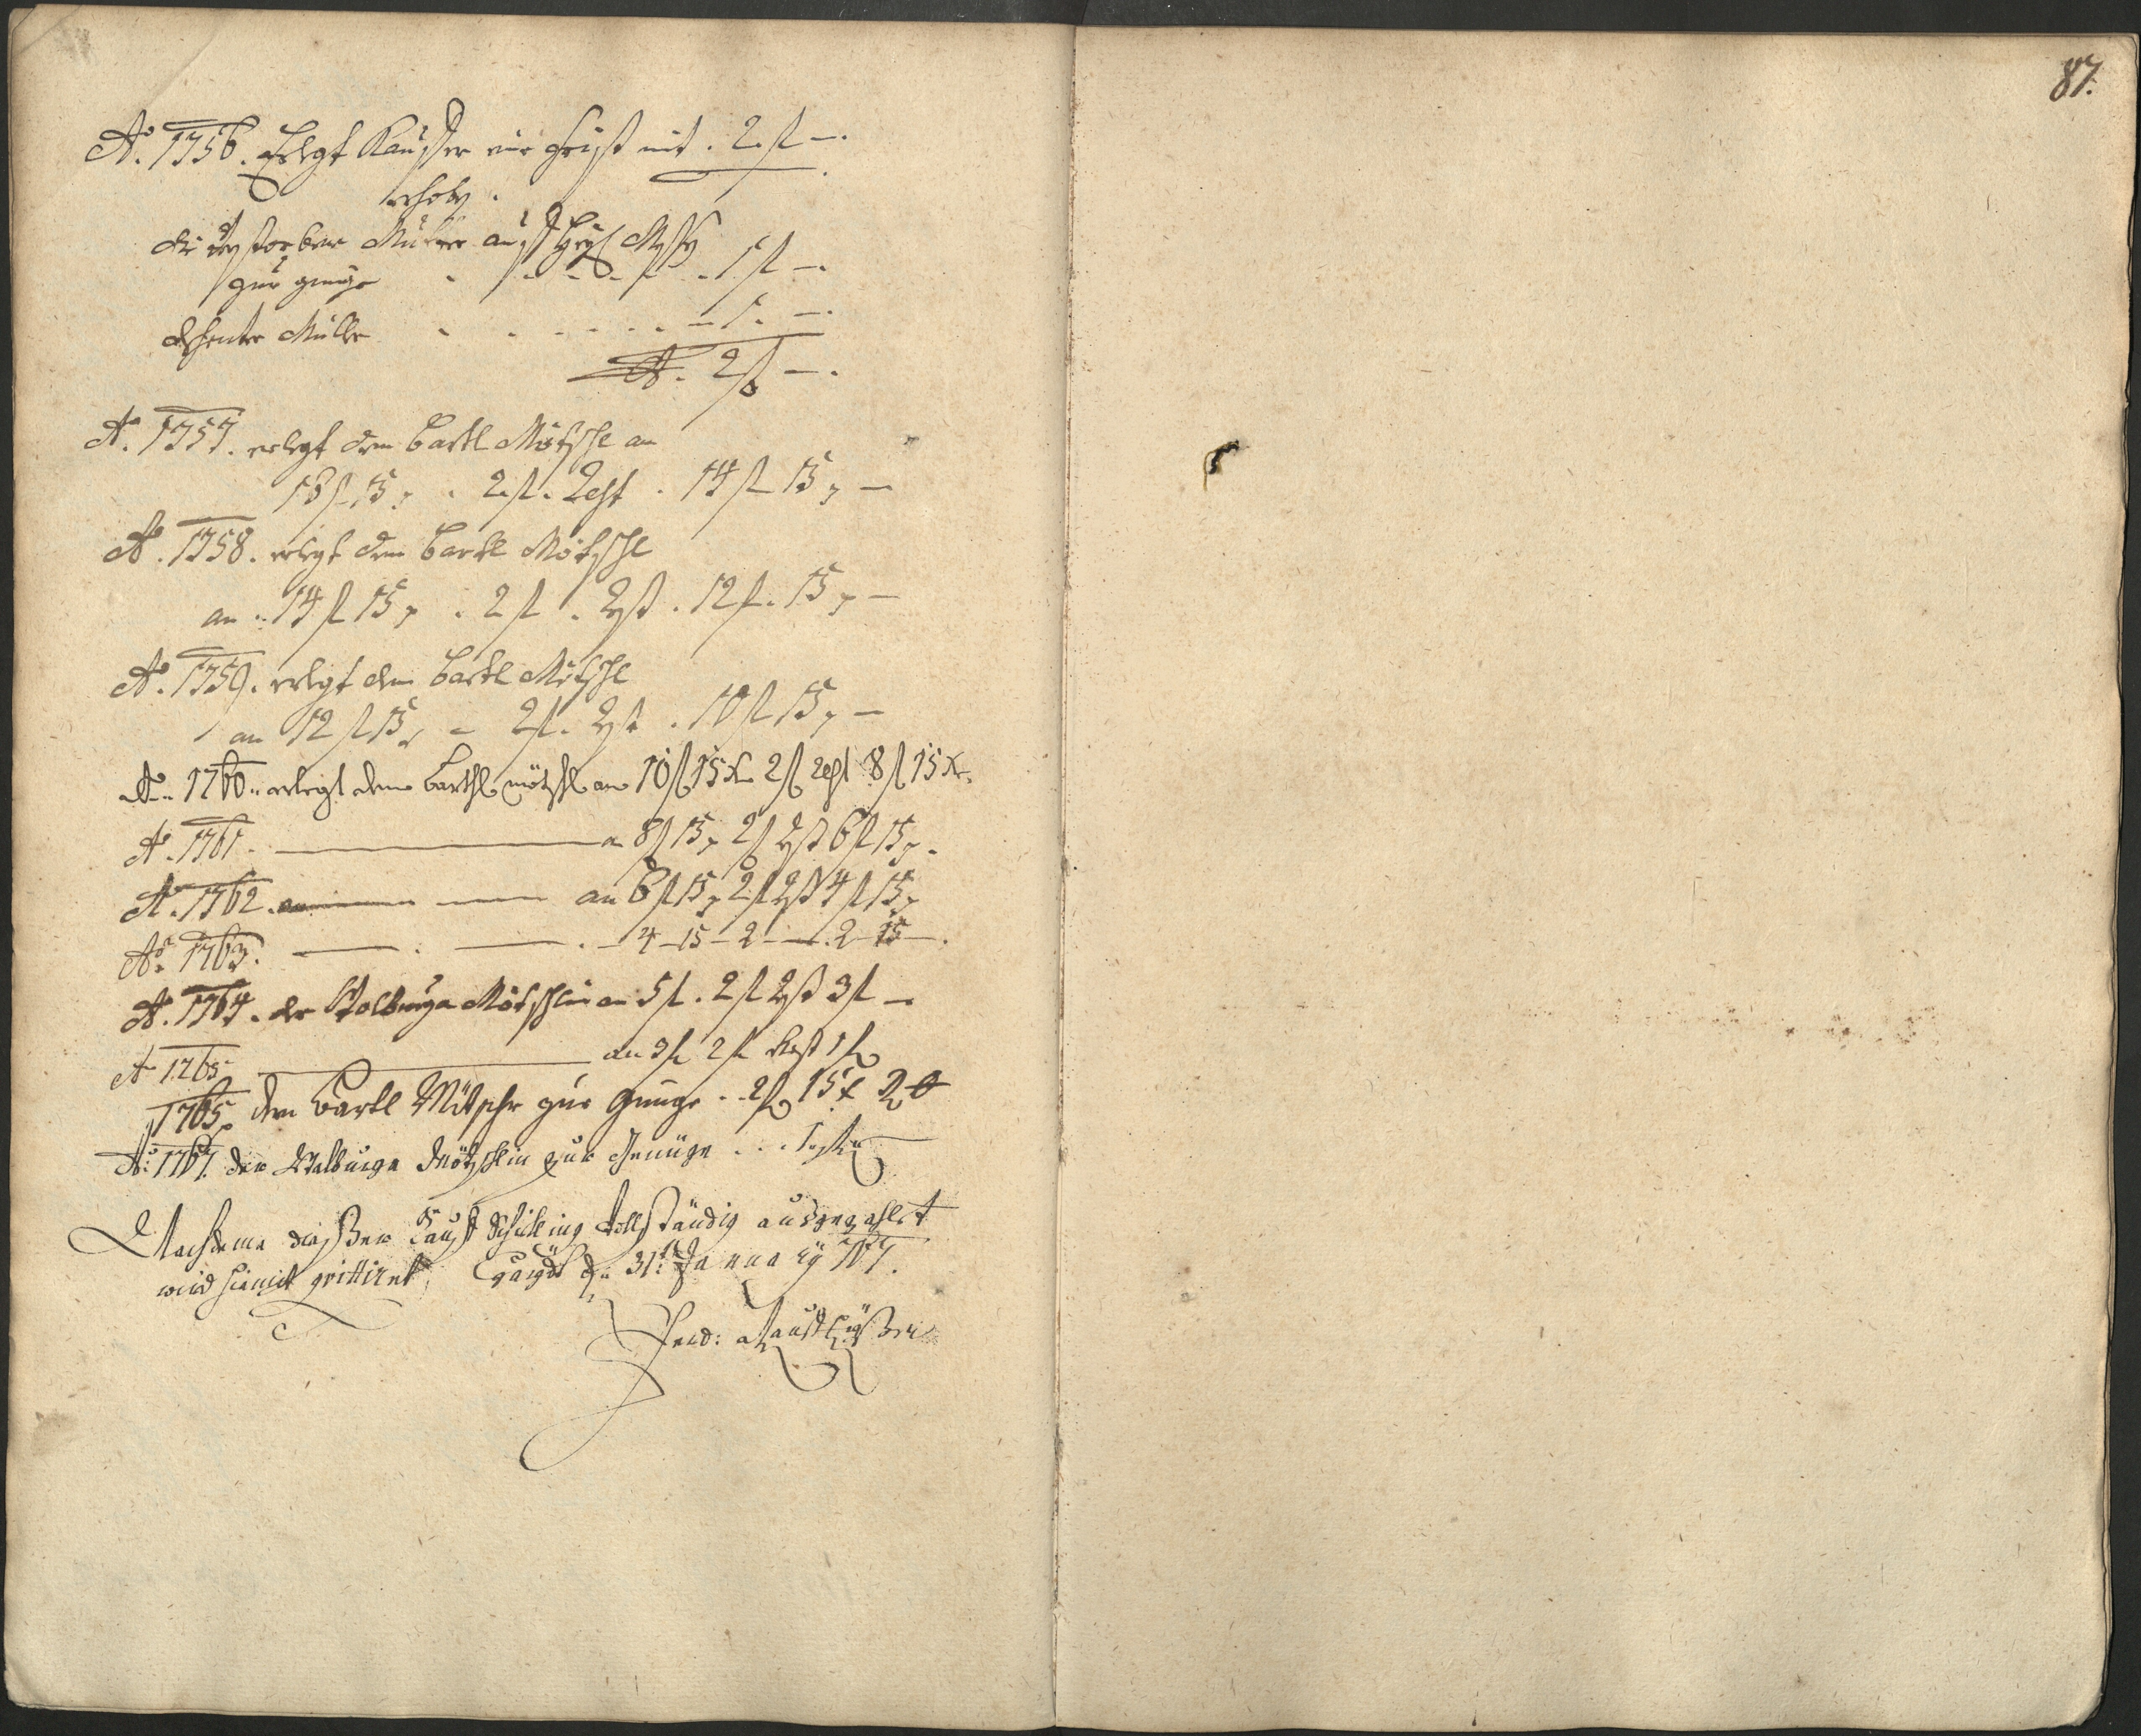 87.
Ao. 1756. Erlegt Kauffer eine Frist mit . 2. fl —.
erhoben .
die verstorbene Müller auf heyl. Messen
zur genüge . . . . 1 fl —.
Müller . . . . . . — 1 . —.
2 fl —.
Ao. 1757. erlegt dem Bartl Mötschl an
16 fl 15 x . 2. fl . Rest . 14 fl 15 x —
Ao. 1758. erlegt dem Bartl Mötschl
an . 14 fl 15 x . 2 fl . Rest . 12 fl . 15 x —
Ao. 1759. erlegt dem Bartl Mötschl
an 12 fl 15 x — 2 fl . Rest . 10 fl 15 x —
Ao. 1760. erlegt dem Barthl mötschl an 10 fl 15 x 2 fl Rest 8 fl 15 x.
Ao. 1761. — a 8 fl 15 x 2 fl Rest 6 fl 15 x.
Ao. 1762. — an 6 fl 15 x 2 fl Rest 4 fl 15 x
Ao. 1763. — . — . — 4 — 15 — 2 — . 2 — 15 —.
Ao. 1764. der Walburga Mötschlin an 5 fl . 2 fl Rest 3 fl —
Ao 1765 — an 3 fl 2 fl Rest 1 fl
1765, dem Bartl Mötschl zur Genüge . . 2 fl 15 x
Ao: 1767. der Walburga Mötzschlin zur Genüge . . . 1 fl —
Nachdeme dießer Kauff Schilling vollständig ausgezahlet
wird hiemit quittiret, den 31: Januarÿ 767.
Ferd: